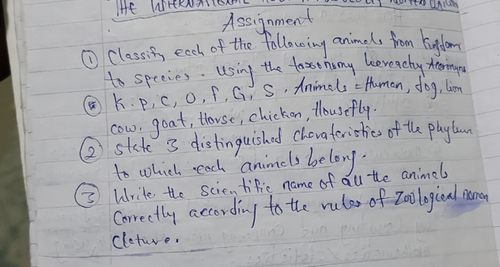 THE INTERNATIONAL
Assignment
① Classify each of the following animals from Kingdom
to species. Using the taxonomy hierachy
K. P, C, O, F, G, S. Animals = Human, dog, Lion
cow, goat, Horse, chicken, Housefly.
② State 3 distinguished charateristics of the phylum
to which each animals belong.
③ Write the scientific name of all the animals
Correctly according to the rules of Zoological nomen
clature.